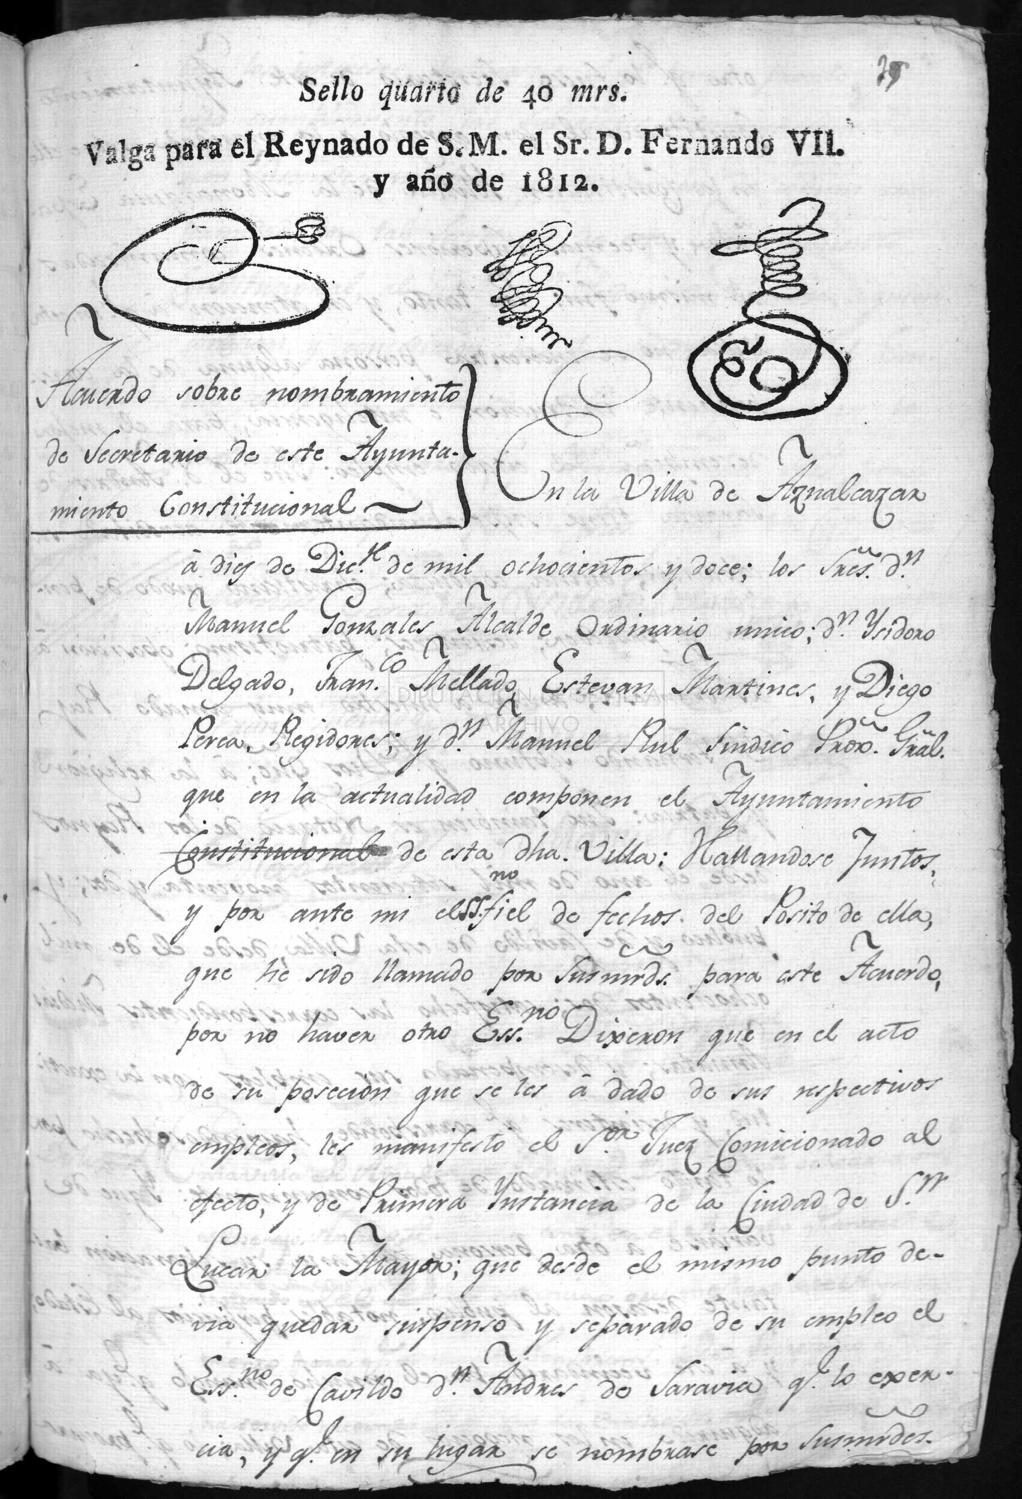 25
Sello quarto de 40 mrs.
Valga para el Reynado de S. M. el Sr. D. Fernando VII.
y año de 1812.
Acuerdo sobre nombramiento
de Secretario de este Ayunta-
miento Constitucional
En la Villa de Aznalcazar
à dies de Dic.re de mil ochocientos y doce; los Sres. d.n
Manuel Gonzales Alcalde Ordinario unico; d.n Ysidoro
Delgado, Fran.co Mellado, Estevan Martines, y Diego
Perea, Regidores; y d.n Manuel Rul Sindico Pror. Gral.
que en la actualidad componen el Ayuntamiento
Constitucional de esta dha. Villa: Hallandose Juntos,
y por ante mi el ss.no fiel de fechos del Posito de ella,
que hè sido llamado por Susmrds. para este Acuerdo,
por no haver otro Ess.no Dixeron que en el acto
de su poseción que se les à dado de sus respectivos
empleos, les manifestó el S.or Juez Comicionado al
efecto, y de Primera Ynstancia de la Ciudad de S.n
Lucar la Mayor; que desde el mismo punto de-
via quedar suspenso y separado de su empleo el
Ess.no de Cavildo d.n Andres de Saravia q.e lo exer-
cia, y q.e en su lugar se nombrase por Susmrdes.
DIPUTACIÓN DE SEVILLA
ARCHIVO